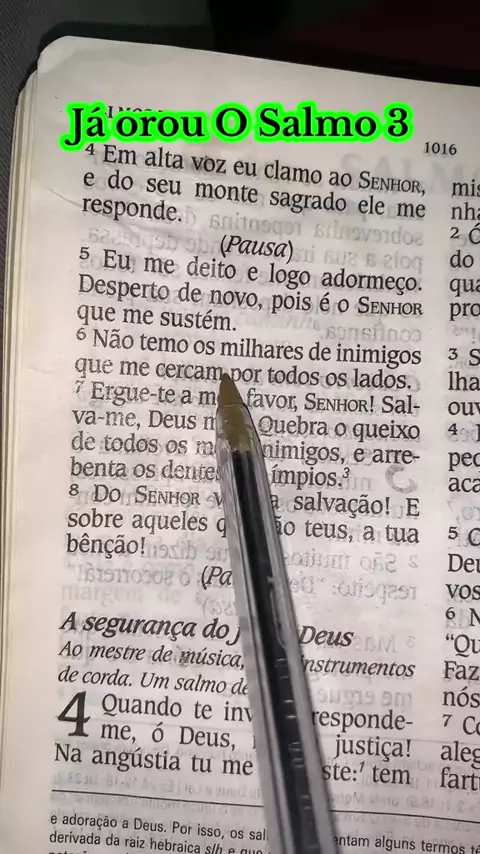 Já orou O Salmo 3
1016
4 Em alta voz eu clamo ao SENHOR,
e do seu monte sagrado ele me
responde.
(Pausa)
5 Eu me deito e logo adormeço.
Desperto de novo, pois é o SENHOR
que me sustém.
6 Não temo os milhares de inimigos
que me cercam por todos os lados.
7 Ergue-te a m favor, SENHOR! Sal-
va-me, Deus m Quebra o queixo
de todos os m nimigos, e arre-
benta os dentes ímpios.3
8 Do SENHOR v a salvação! E
sobre aqueles q ão teus, a tua
bênção!
(Pa
A segurança do j Deus
Ao mestre de música, instrumentos
de corda. Um salmo de
4 Quando te inv responde-
me, ó Deus, justiça!
Na angústia tu me ste:1 tem
e adoração a Deus. Por isso, os sal entam alguns termos
derivada da raiz hebraica slh e que
mis
nha
2 Ó
do
qua
pro
3 S
lha
ouv
4
ped
aca
5 O
Deu
vos
6 N
“Qu
Faz
nós
7 Co
aleg
fart